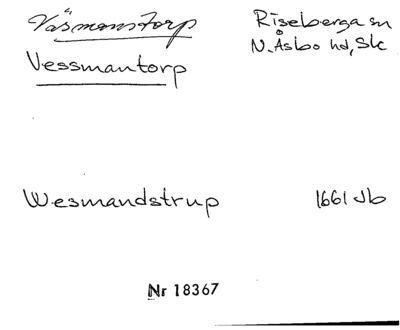 Väsmanstorp
Riseberga sn
Vessmantorp
N. Åsbo hd, Sk
Wesmandstrup
1661 Jb
Nr 18367